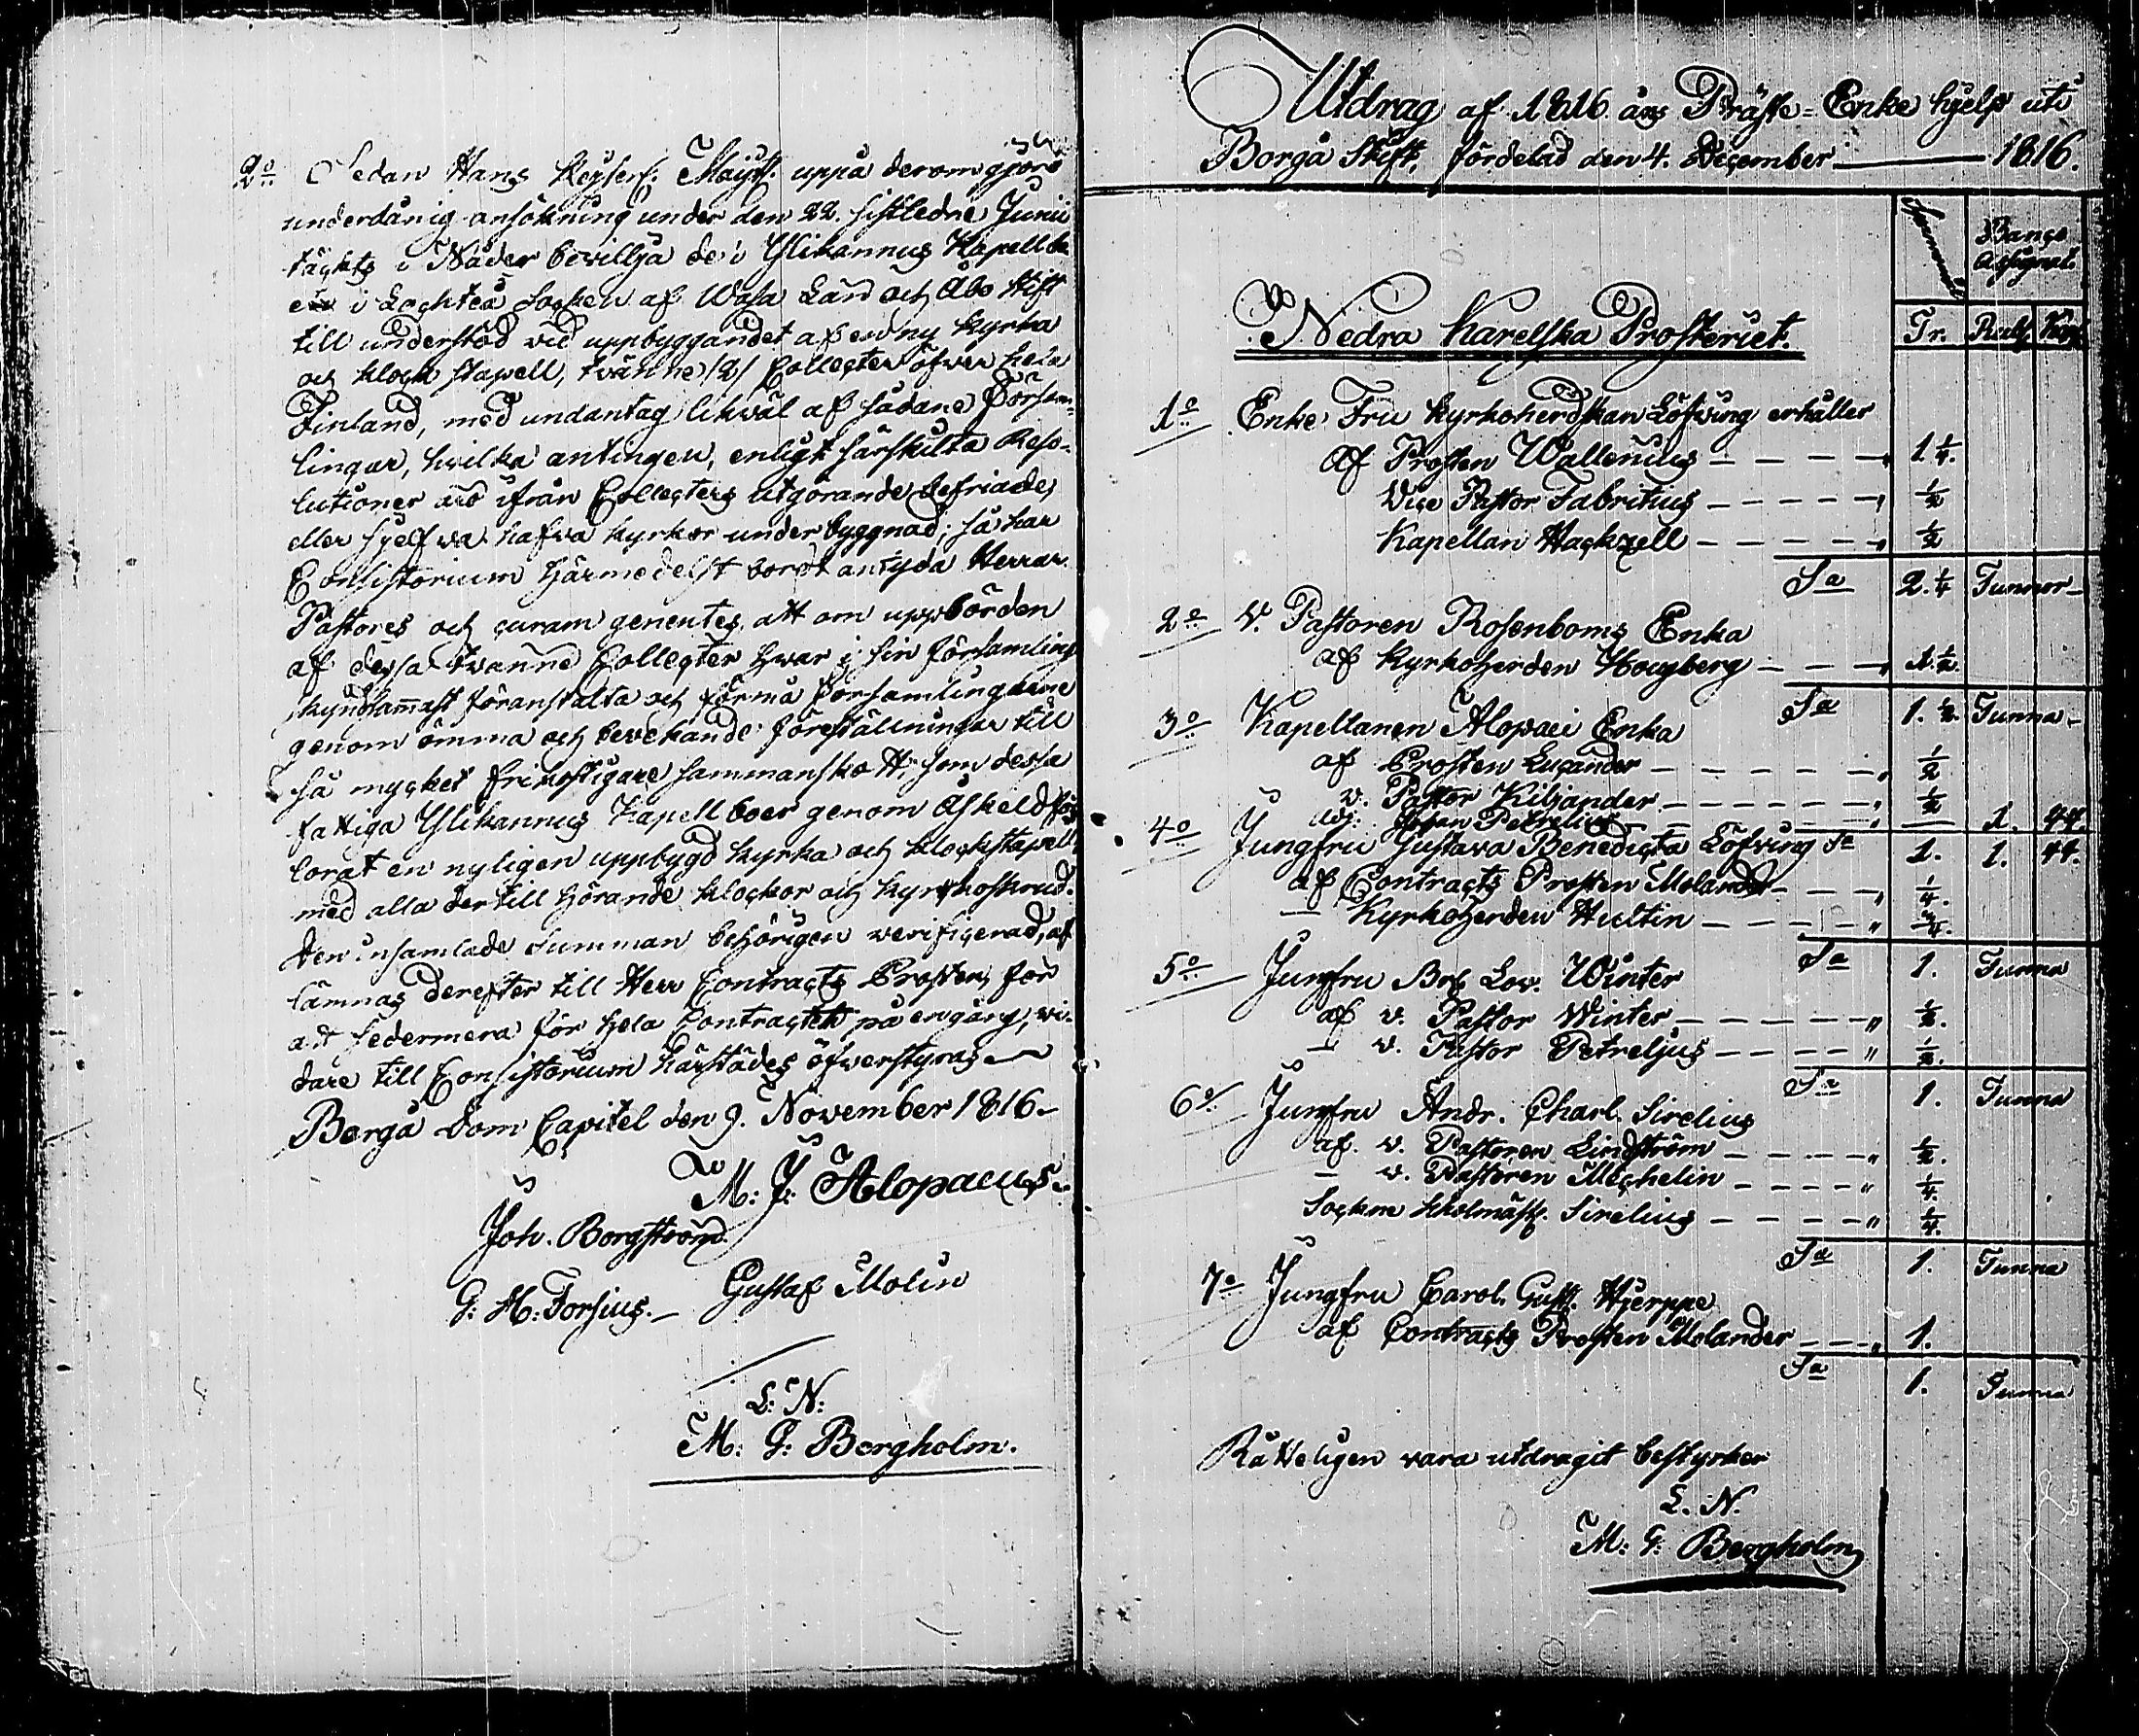 2:o Sedan Hans Keyserl. Majst. uppå derom gjord
underdånig ansökning under den 22. sistledne Junii
täckts i Nåder bevillja de i Ylikannus Kapell be
i Lochteå Socken af Wasa Län och Åbo Stift
till understöd vid uppbyggandet af en ny Kyrka
och klock stapell, tvänne /2/ Collecter öfwer hela
Finland, med undantag likväl af sådane Försam-
lingar, hvilka antingen, enligt särskilta Reso-
lutioner äro ifrån Collecters utgörande befriade,
eller sjelfwa hafwa kyrkor under byggnad; så har
Consistorium härmedelst bordt antyda Herrar
Pastores och curam gerentes, att om uppbörden
af dessa tvänne Collecter hwar i sin församling
skyndsamast föranstalta och förmå Församlingarne
genom ömma och bevekande föreställningar till
så mycket frikostigare sammanskott, som dessa
fattiga Ylikannus Kapellboer genom Åskeld för-
lorat en nyligen uppbygd kyrka och klockstapell
med alla dertill hörande klockor och kyrkoskrud.
Den insamlade Summan behörigen verificerad, af
lämnas derefter till Herr Contracts Prosten, för
att sedermera för hela Contractet på en gång, vi-
dare till Consistorium härstädes öfwerstyras
Borgå Dom Capitel den 9. November 1816.
M: J: Alopaeus.
Joh. Borgström.
G: H: Forsius. Gustaf Molin
L: N:
M: G: Bergholm.
Utdrag af 1816 års Präste-Enke hjelp uti
Borgå Stift, fördelad den 4. December 1816.
Spannmål Banco Assignat.
Nedra Karelska Prosteriet. Tr. Rub. Kop.
1:o Enke Fru Kyrkoherdskan Löfving erhåller
af Prosten Wallenius 1 1/4.
Vice Pastor Fabritius 1/2
Kapellan Hackzell 1/2
S:a 2. 1/4 Tunnor
2:o V. Pastoren Rosenboms Enka
af Kyrkoherden Hougberg 1. 1/2.
S:a 1. 1/2. Tunna
3:o Kapellanen Alopaei Enka
af Prosten Lucander 1/2
v. Pastor Kiljander 1/2
Adj. Johan Petrelius 1. 44.
S:a 1. 1. 44.
4:o Jungfru Gustava Benedicta Löfving
af Contracts Prosten Molander 1/4.
Kyrkoherden Hultin 3/4.
S:a 1. Tunna
5:o Jungfru Brl. Lov. Winter
af v. Pastor Winter 1/2.
v. Pastor Petreljus 1/2.
S:a 1. Tunna
6:o Jungfru Andr. Charl. Sirelius
af v. Pastoren Lindström 1/2.
v. Pastoren Michelin 1/4.
Sockne Skolmäst. Sirelius 1/4.
S:a 1. Tunna
7:o Jungfru Carol. Gust. Hjerppe
af Contracts Prosten Molander 1.
S:a 1. Tunna
Rätteligen vara utdragit bestyrker
L. N.
M: G: Bergholm